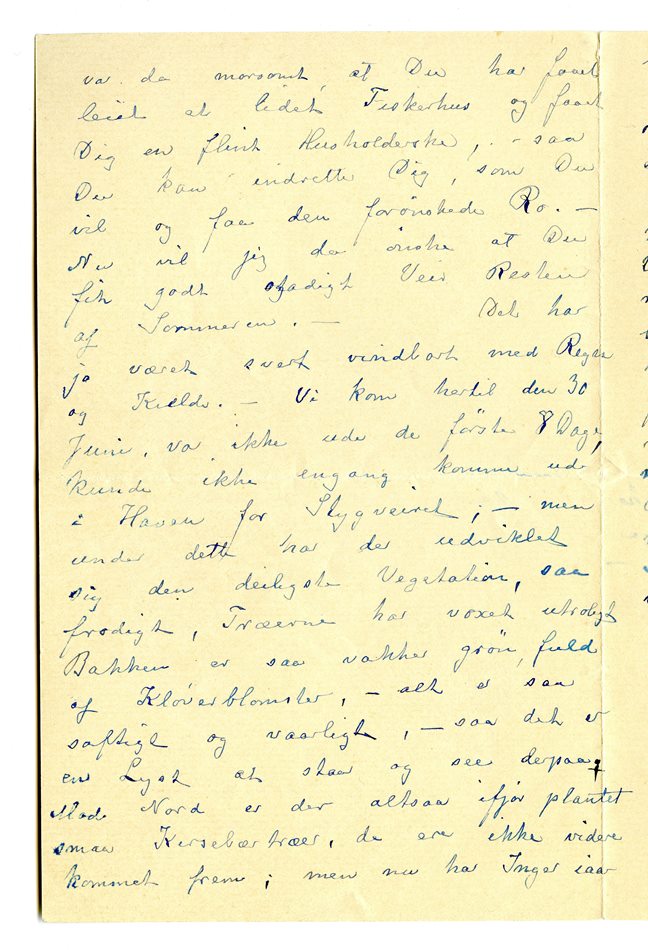 var da morsomt, at Du har faaet
leiet et lidet Fiskerhus og faaet
Dig en flink Husholderske, - saa
Du kan indrette Dig, som Du
vil og faa den forönskede Ro. -
Nu vil jeg da önske at Du
fik godt stadigt Veir Resten
af Sommeren. - Det har
jo været svert vindhart med Regn
og Kulde. - Vi kom hertil den 30
Juni, va ikke ude de förste 8 Dage,
kunde ikke engang komme ud
i Haven for Stygveiret; - men
under dette har der udviklet
sig den deiligste Vegetation, saa
frodigt, Træerne har voxet utroligt
Bakken er saa vakker grön, fuld
af Klöverblomster, - alt er saa
saftigt og vaarligt, - saa det er
en Lyst at staa og see derpaa,
Mod Nord er der altsaa ifjor plantet
smaa Kirsebærtræer, de ere ikke videre
kommet frem; men nu har Inger iaar